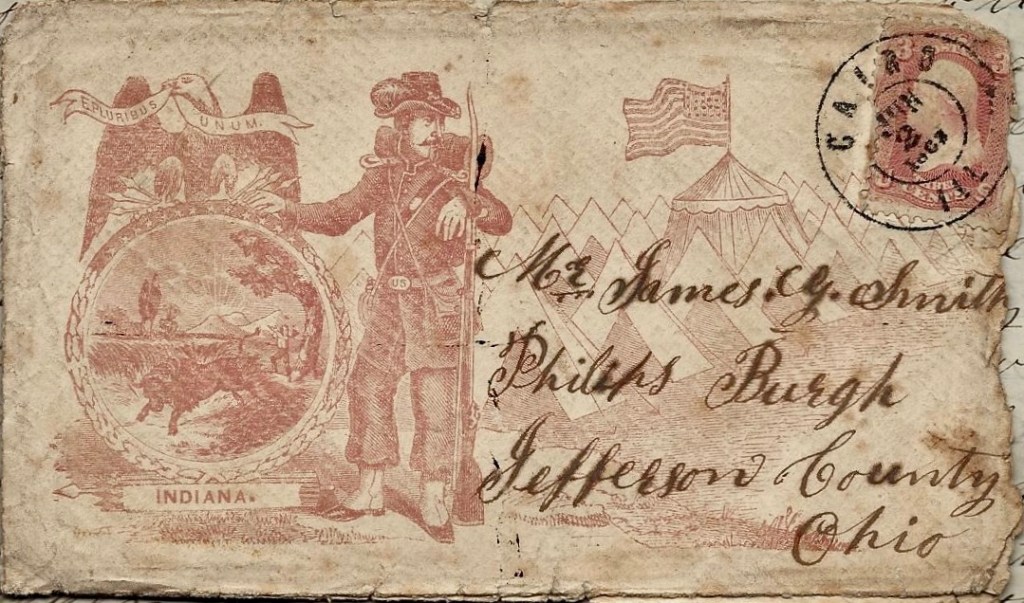 E PLURIBUS UNUM.
US
INDIANA.
3
CAIRO
ILL
JUN
Mr. James. G. Smith
Philips Burgh
Jefferson County
Ohio